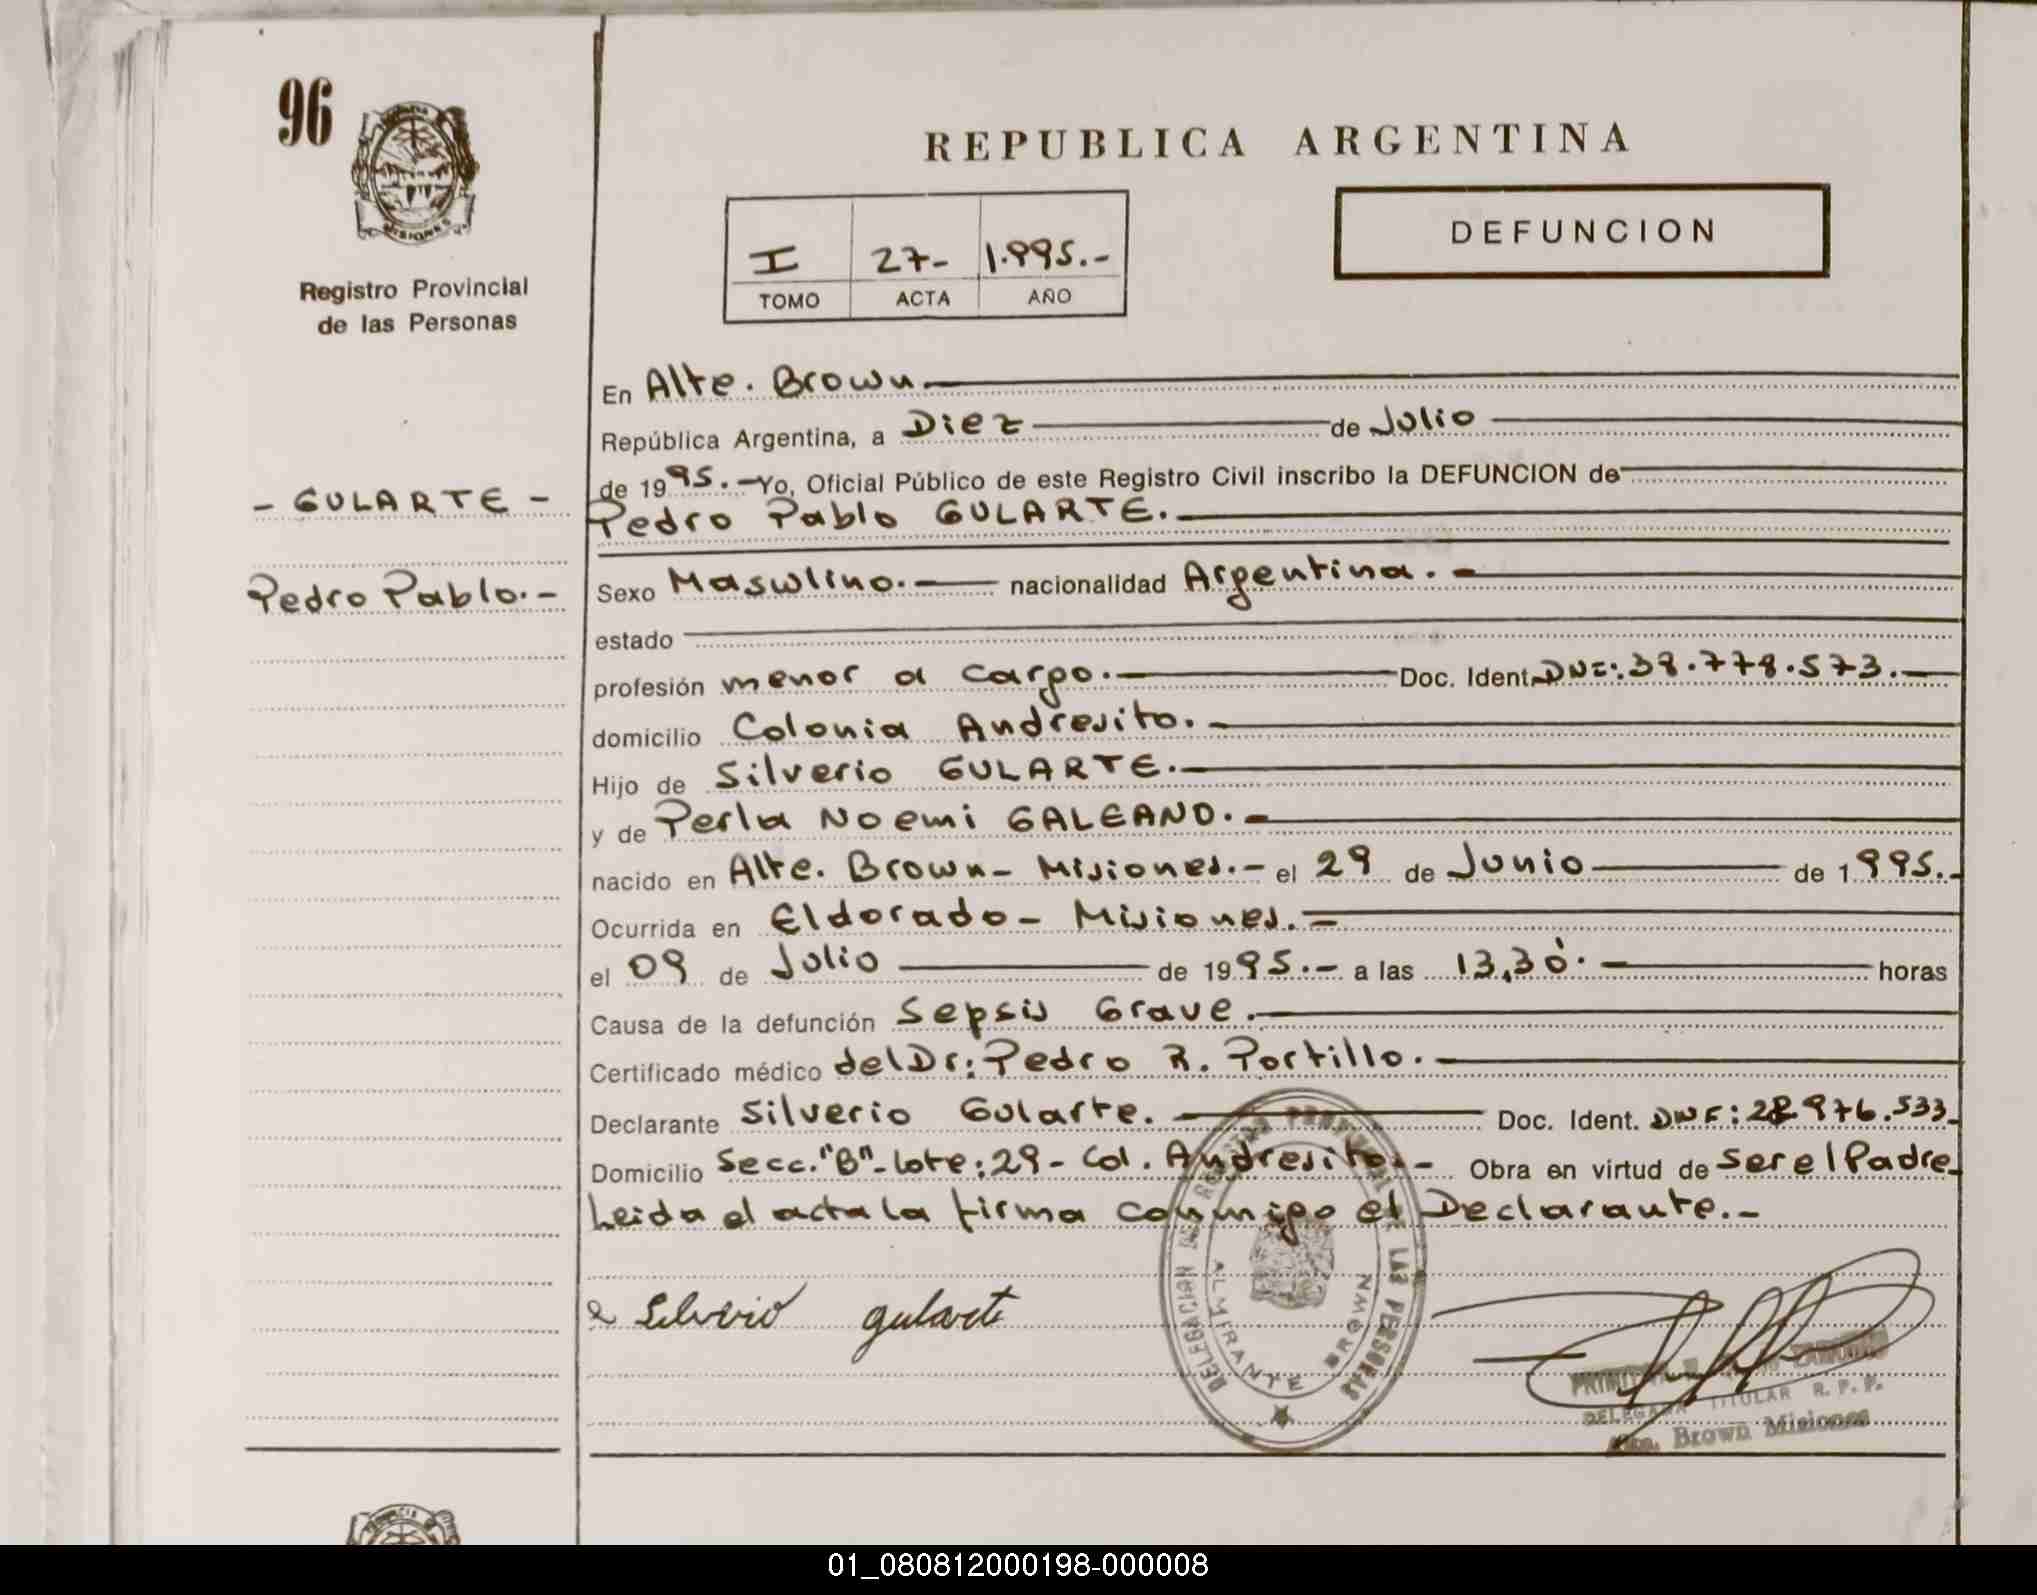 96
MISIONES
Registro Provincial
de las Personas
- GULARTE -
Pedro Pablo.-
REPUBLICA ARGENTINA
I 27- 1.995.-
TOMO ACTA AÑO
DEFUNCION
En Alte. Brown
República Argentina, a Diez de Julio
de 1995.- Yo, Oficial Público de este Registro Civil inscribo la DEFUNCION de
Pedro Pablo GULARTE.
Sexo Masculino.- nacionalidad Argentina.-
estado
profesión menor a cargo. Doc. Ident. DNI: 38.778.573.-
domicilio Colonia Andresito.-
Hijo de Silverio GULARTE.-
y de Perla Noemi GALEANO.-
nacido en Alte. Brown- Misiones.- el 29 de Junio de 1995.-
Ocurrida en Eldorado- Misiones.-
el 09 de Julio de 1995.- a las 13,30.- horas
Causa de la defunción Sepsis Grave.
Certificado médico del Dr: Pedro R. Portillo.-
Declarante Silverio Gularte. Doc. Ident. DNI: 28976.533-
Domicilio Secc."B"-lote:29- Col. Andresito.- Obra en virtud de ser el Padre-
Leida el acta la firma conmigo el Declarante.-
Silverio gularte
DELEGACION DE REGISTRO PROVINCIAL DE LAS PERSONAS
ALMIRANTE BROWN
DELEGADA TITULAR R. P. P.
Brown Misiones
01_080812000198-000008